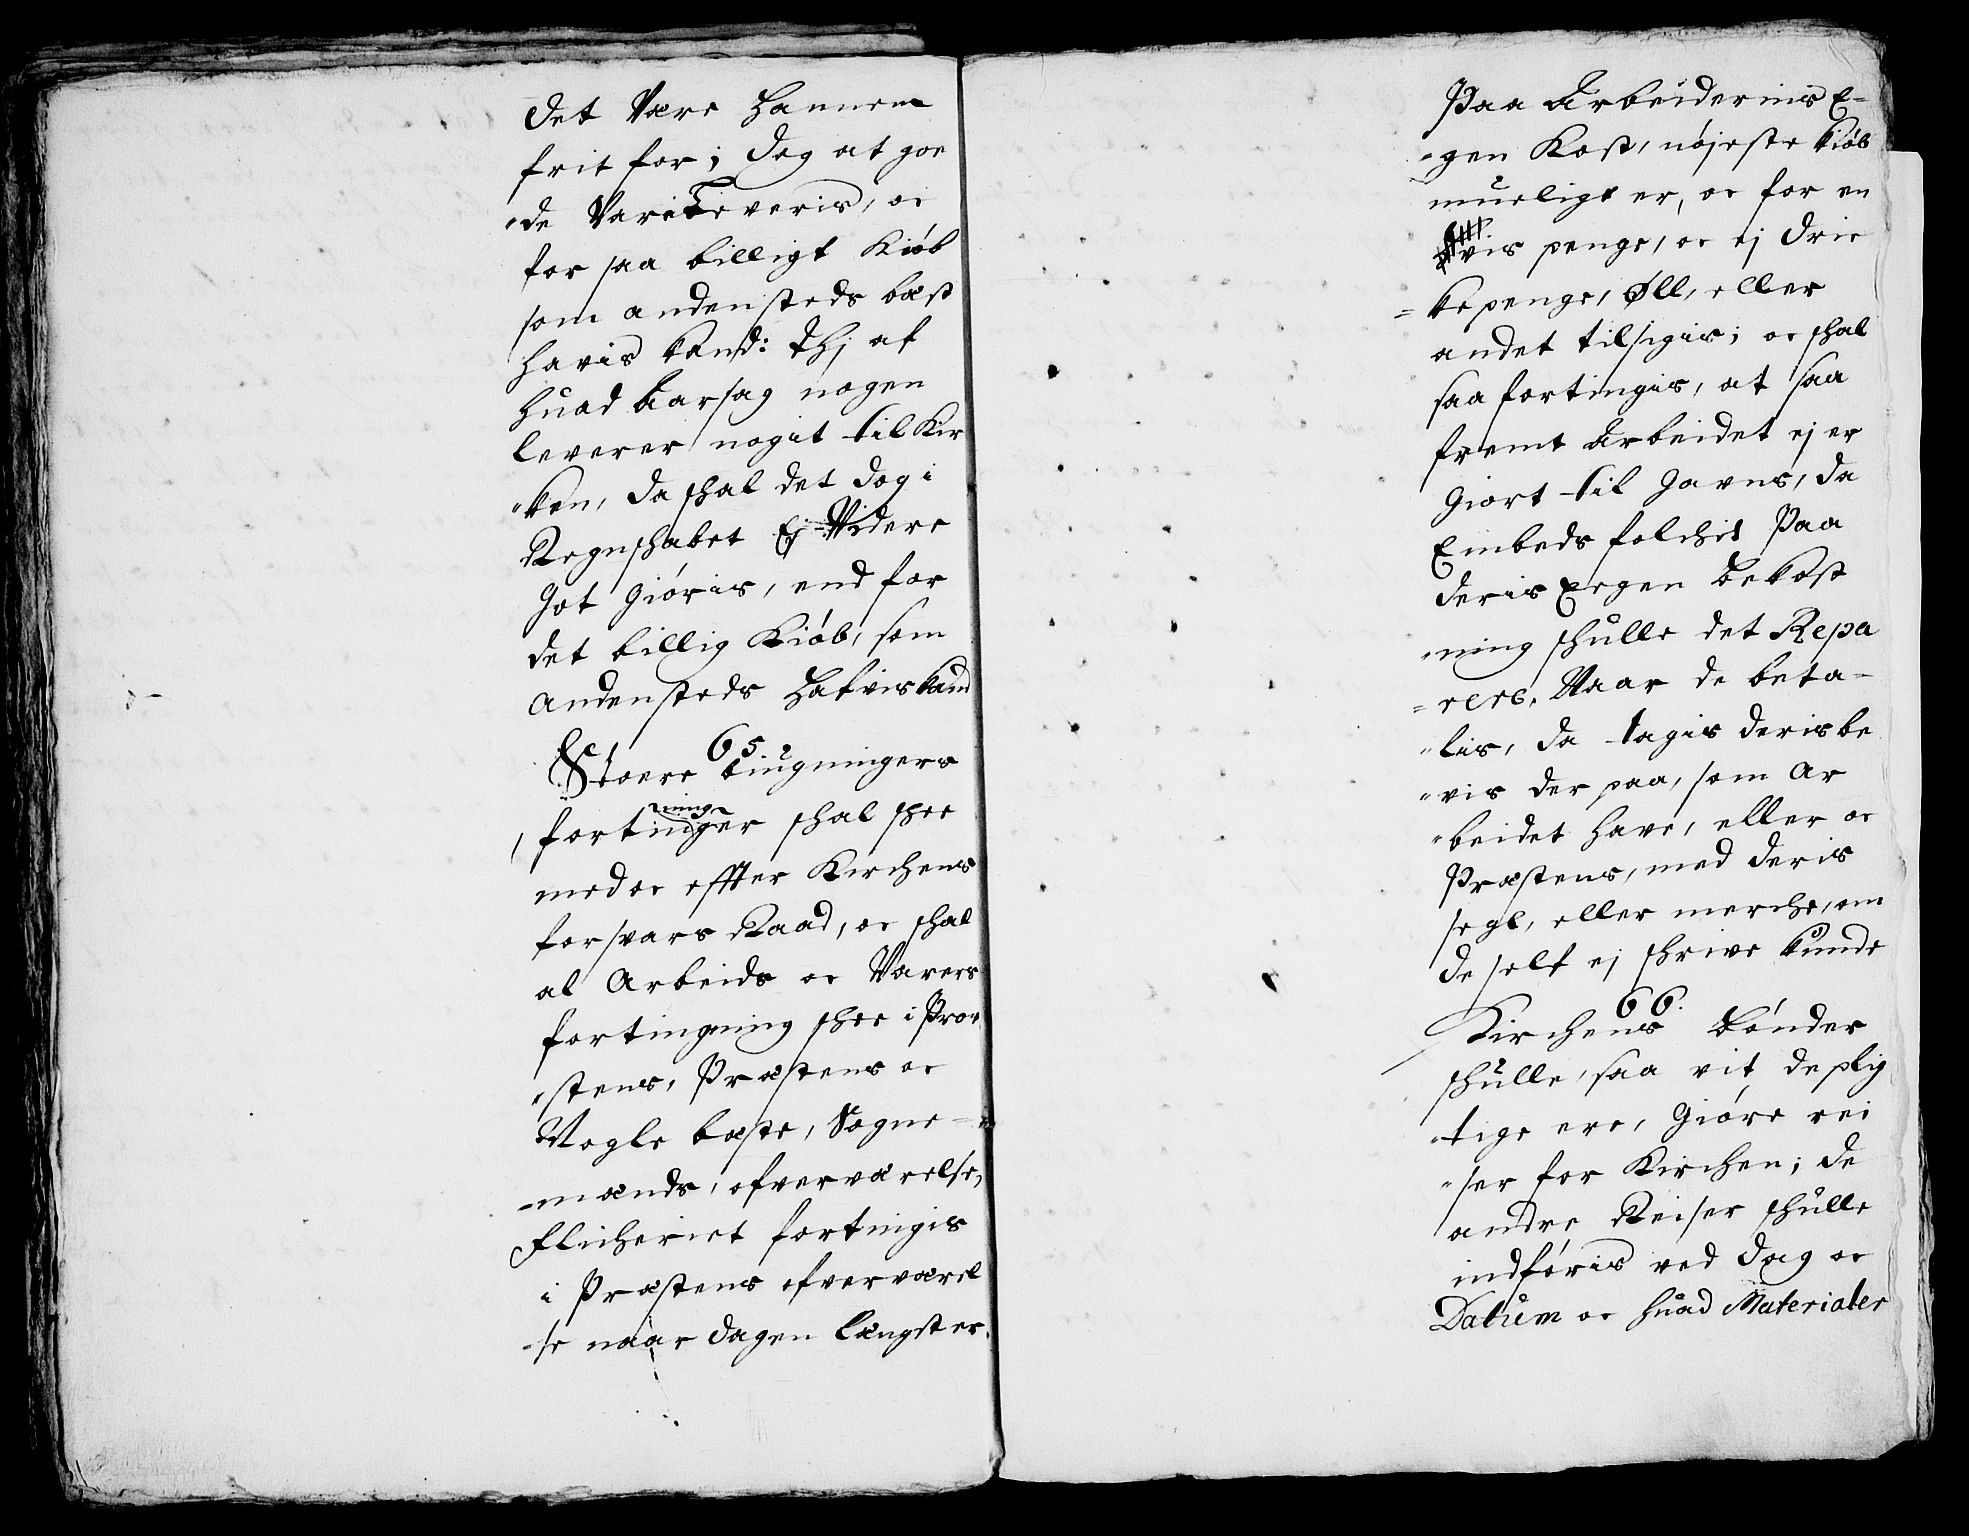 det Være hannem
frit for; dog at goe
"de Vare Leveris, oc
for saa billigt Kiób
som andensteds bæst
havis kand: thj af
huad Aarsag nogen
leverer nogit til Kir
"ken, da skal det dog i
Regnskabet Ej Videre
Got Gióris, end for
det billig Kiób, som
andensteds hafvis kand
65.
Stoere biugningers
fortinger ning skal skee
med oc effter Kirchens
forsvars Raad, oc skal
al Arbeids oc Varers
fortingning skee i Pro
"stens, Præstens oc
Nogle bæste, Sogne-
-mænds, ofverværelse,
Flicheriet fortingis
i Præstens ofverværel
-se naar dagen længst er.
Paa Arbeidernis E-
"gen Kost, nójeste kiób
mueligt er, oc for en
vis penge, oc ej dric
=kepenge, Øll, eller
andet tilsigis; oc skal
saa fortingis, at saa
fremt Arbeidet ej er
Giort til Gavns, da
Embeds folchis Paa
deris Eegen bekost
"ning skulle det Repa
=rere. Naar de beta-
"lis, da tagis deris be
"vis der paa, som Ar
"beidet have, eller oc
Præstens, med deris
segl, eller merche, om
de self ej skrive kunde
66.
Kirchens bónder
skulle, saa vit de plig
"tige ere, Gióre rei
"ser for Kirchen; de
andre Reiser skulle
indfóris ved dag oc
Datum oc huad Materialer